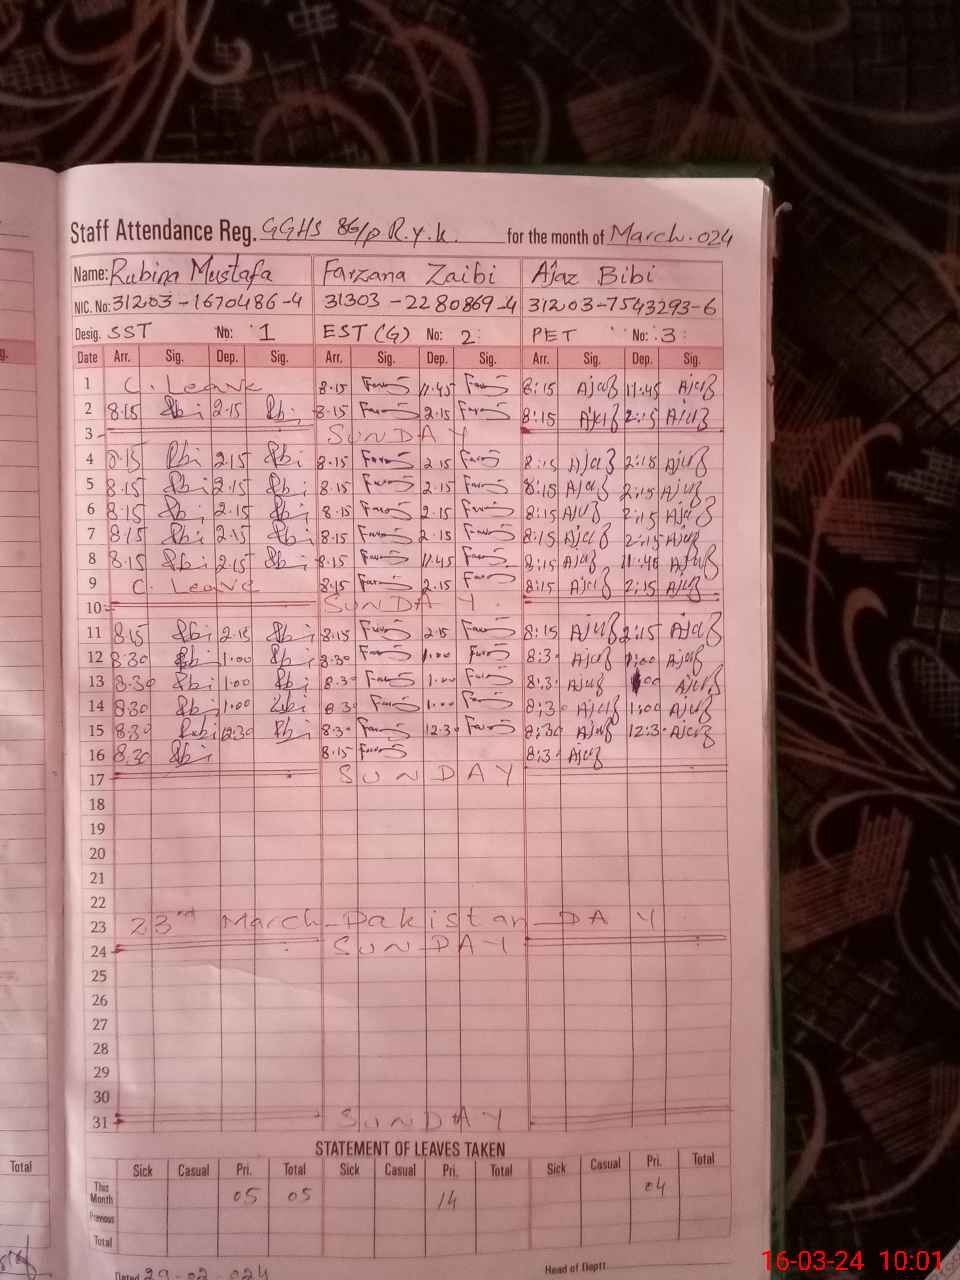 Staff Attendance Reg. GGHS 86/P R.Y.K. for the month of March.024
Name: Rubina Mustafa Farzana Zaibi Ajaz Bibi
NIC. No: 31203-1670486-4 31303-2280869-4 31203-7543293-6
Desig. SST No: 1 EST(G) No: 2 PET No: 3
Date Arr. Sig. Dep. Sig. Arr. Sig. Dep. Sig. Arr. Sig. Dep. Sig.
1 C. Leave 8.15 11.45 8:15 Ajaz 11:45 Ajaz
2 8.15 Rbi 2.15 Rbi 8.15 2.15 8:15 Ajaz 2:15 Ajaz
3 SUNDAY
4 8.15 Rbi 2.15 Rbi 8.15 2.15 8:15 Ajaz 2:15 Ajaz
5 8.15 Rbi 2.15 Rbi 8.15 2.15 8:15 Ajaz 2:15 Ajaz
6 8.15 Rbi 2.15 Rbi 8.15 2.15 8:15 Ajaz 2:15 Ajaz
7 8.15 Rbi 2.15 Rbi 8.15 2.15 8:15 Ajaz 2:15 Ajaz
8 8.15 Rbi 2.15 Rbi 8.15 11.45 8:15 Ajaz 11:45 Ajaz
9 C. Leave 8.15 2.15 8:15 Ajaz 2:15 Ajaz
10 SUNDAY
11 8.15 Rbi 2.15 Rbi 8.15 2.15 8:15 Ajaz 2:15 Ajaz
12 8.30 Rbi 1.00 Rbi 8.30 1.00 8:30 Ajaz 1:00 Ajaz
13 8.30 Rbi 1.00 Rbi 8.30 1.00 8:30 Ajaz 1:00 Ajaz
14 8.30 Rbi 1.00 Rbi 8.30 1.00 8:30 Ajaz 1:00 Ajaz
15 8.30 Rbi 12.30 Rbi 8.30 12.30 8:30 Ajaz 12:30 Ajaz
16 8.30 Rbi 8.15 8:30 Ajaz
17 SUNDAY
18
19
20
21
22
23 23rd March-Pakistan-DAY
24 SUNDAY
25
26
27
28
29
30
31 SUNDAY
STATEMENT OF LEAVES TAKEN
Total Sick Casual Pri. Total Sick Casual Pri. Total Sick Casual Pri. Total
This Month 05 05 14 04
Previous
Total
Dated 29-02-024 Head of Deptt
16-03-24 10:01